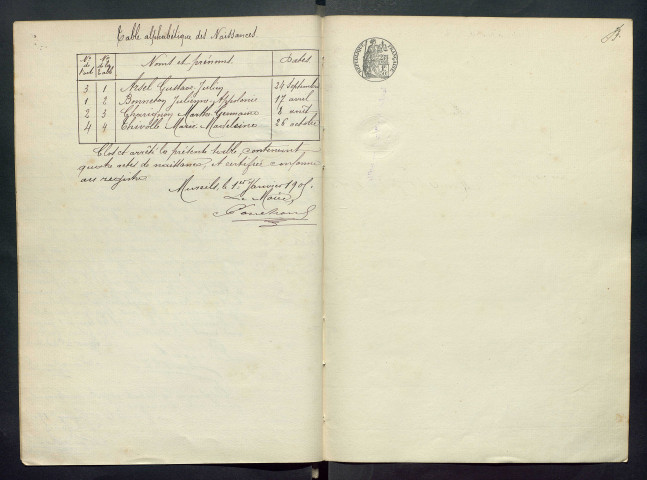 Table alphabétique des Naissances.
Nos de l'act. Nos de la Table Noms et prénoms Dates
3 1 Arsel Gustave Julien 24 septembre
1 2 Bonneton Julienne 17 avril
2 3 Marthe Germaine août
4 4 Chevolle Marie Madeleine 26 octobre
Clos et arrêté la présente table, contenant
quatre actes de naissance, et certifiée conforme
aux registres
le 1er Janvier 1905.
Le Maire,
REPUBLIQUE FRANÇAISE